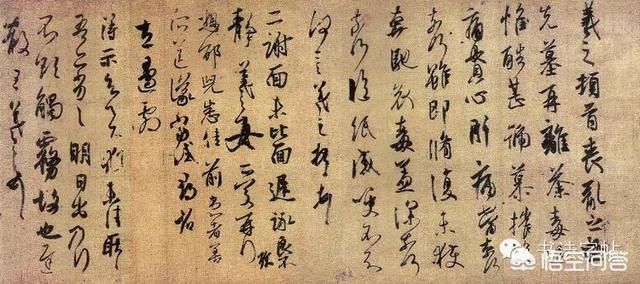 羲之頓首喪亂之極
先墓再離荼毒追
惟酷甚號慕摧絕
痛貫心肝痛當奈何
奈何雖即脩復未獲
奔馳哀毒益深奈何
奈何臨紙感哽不知
何言羲之頓首頓首
二謝面未比面遲詠良不
靜羲之女愛再拜
想邵兒悉佳前患者善
所送議當試尋省
左邊劇
得示知足下猶未佳耿耿
吾亦劣劣明日出乃行
不欲觸霧故也遲
散王羲之頓首
书法字帖
悟空问答